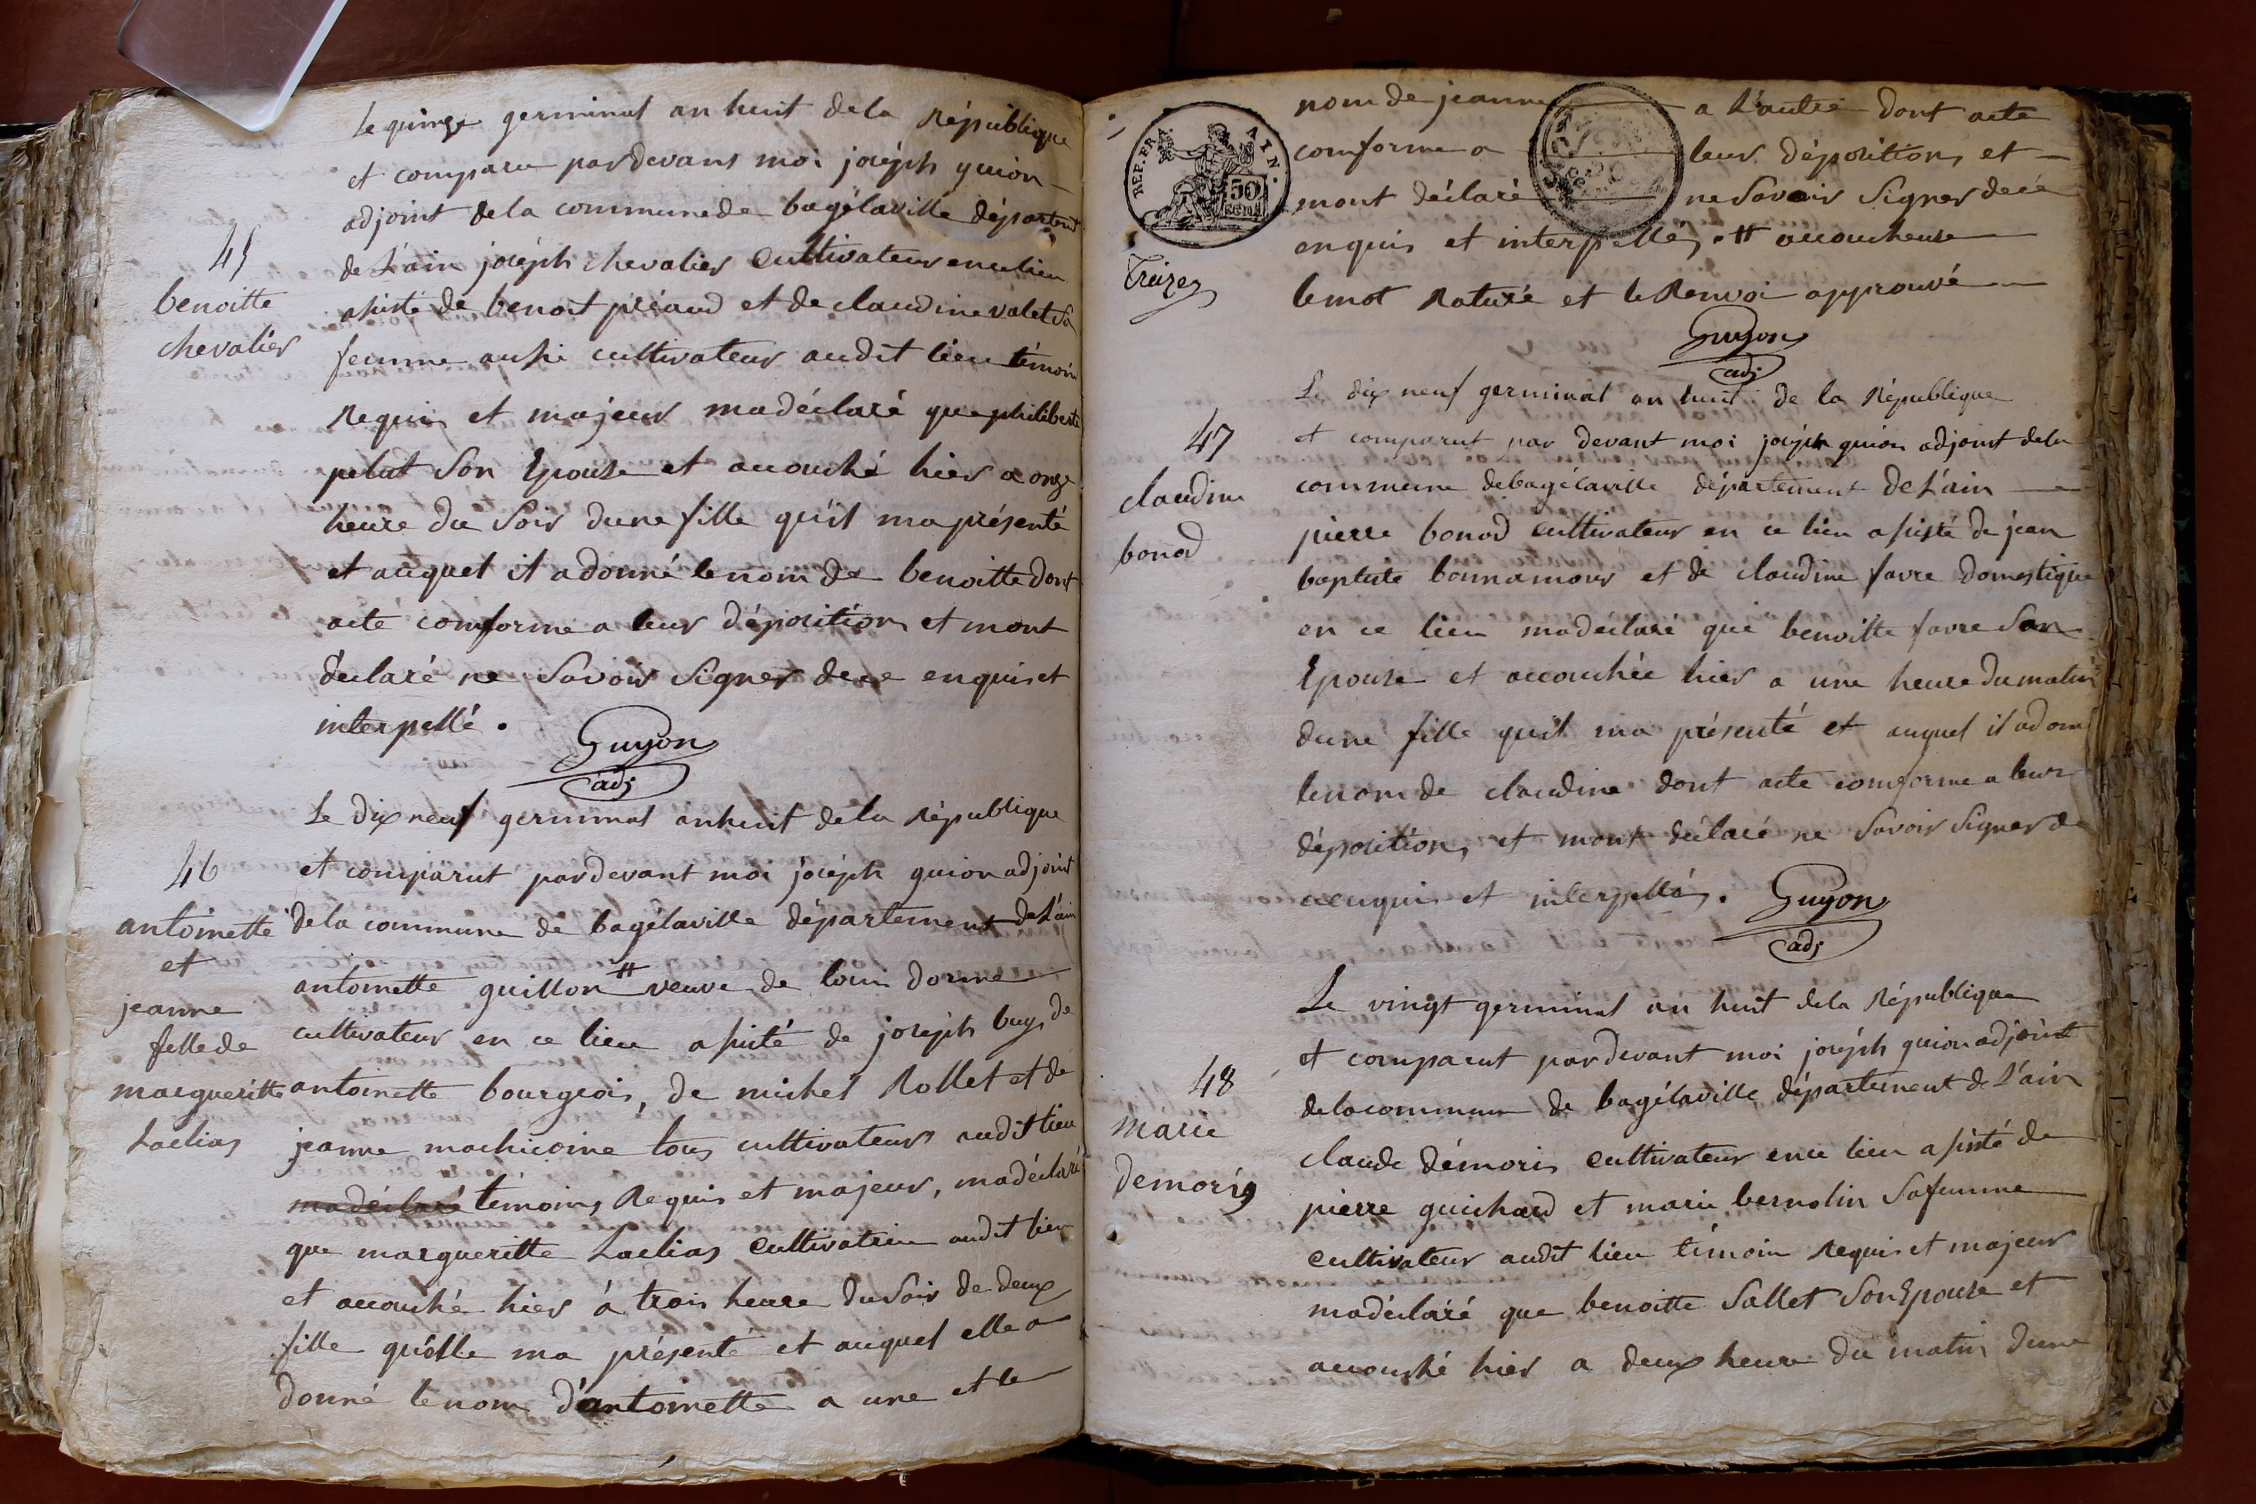 Le quinze germinal an huit de la République
et comparu pardevant moi joséph guion
adjoint de la commune de bagélaville départemt
45
de L'ain joséph chevalier cultivateur en ce lieu
benoitte
chevalier
asisté de benoit préaud et de claudine valet sa
femme aussi cultivateur audit lieu témoin
Requis et majeur madéclaré que philiberte
pelut son Epouse et accouché hier a onze
heure du soir dune fille qu'il ma présenté
et auquel il a donné le nom de benoitte dont
acte comforme a leur déposition et mont
déclaré ne savoir signer de ce enquis et
interpellé.
Guyon
adj
Le dix neuf germinal an huit de la République
46
antoinette
et
jeanne
fille de
margueritte
Laclias
et comparut pardevant moi joséph guion adjoint
de la commune de bagélaville département de L'ain
antoinette guillon # veuve de louis dorme
cultivateur en ce lieu asisté de joséph buys de
antoinette bourgeois, de michel Rollet et de
jeanne machicoine tous cultivateur audit lieu
madéclaré témoins Requis et majeur, madéclaré
que margueritte Laclias cultivatrice audit lieu
et accouché hier à trois heure du soir de deux
fille qu'elle ma présenté et auquel elle a
donné le nom d'antoinette a une et le
REP. FRA. AIN.
50 CENT.
Treize
nom de jeanne a L'autre dont acte
comforme a leur déposition et
mont déclaré ne savoir signer de ce
enquis et interpellés. # accoucheuse
le mot Raturé et le Renvoi approuvé
Guyon
adj
Le dix neuf germinal an huit de la République
47
claudine
bonod
et comparut par devant moi joséph guion adjoint de la
commune de bagélaville département de L'ain
pierre bonod cultivateur en ce lieu asisté de jean
baptiste bonnamour et de claudine favre domestique
en ce lieu madéclaré que benoitte favre son
Epouse et accouchée hier a une heure du matin
dune fille qu'il ma présenté et auquel il a donné
le nom de claudine dont acte comforme a leur
déposition, et mont déclaré ne savoir signer de
ce enquis et interpellés.
Guyon
adj
Le vingt germinal an huit de la République
48
marie
demoris
et comparut pardevant moi joséph guion adjoint
de la commune de bagélaville département de L'ain
claude démoris cultivateur en ce lieu asisté de
pierre guichard et marie bernolin sa femme
cultivateur audit lieu témoin Requis et majeur
madéclaré que benoitte Sallet son Epouse et
accouché hier a deux heure du matin dune